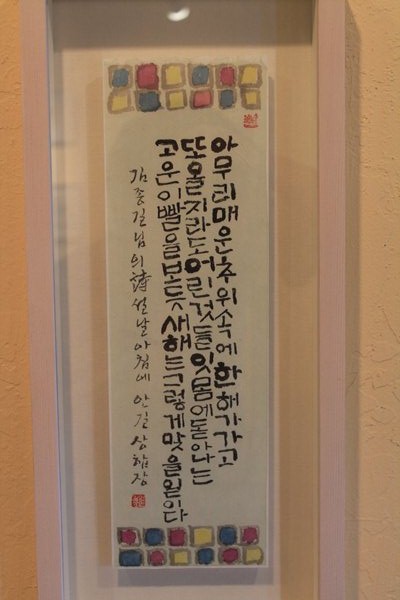 아무리매운추위속에한해가가고
또올지라도어린것들잇몸에돋아나는
고운이빨을보듯새해는그렇게맞을일이다
김종길님의詩설날아침에 안길상합장